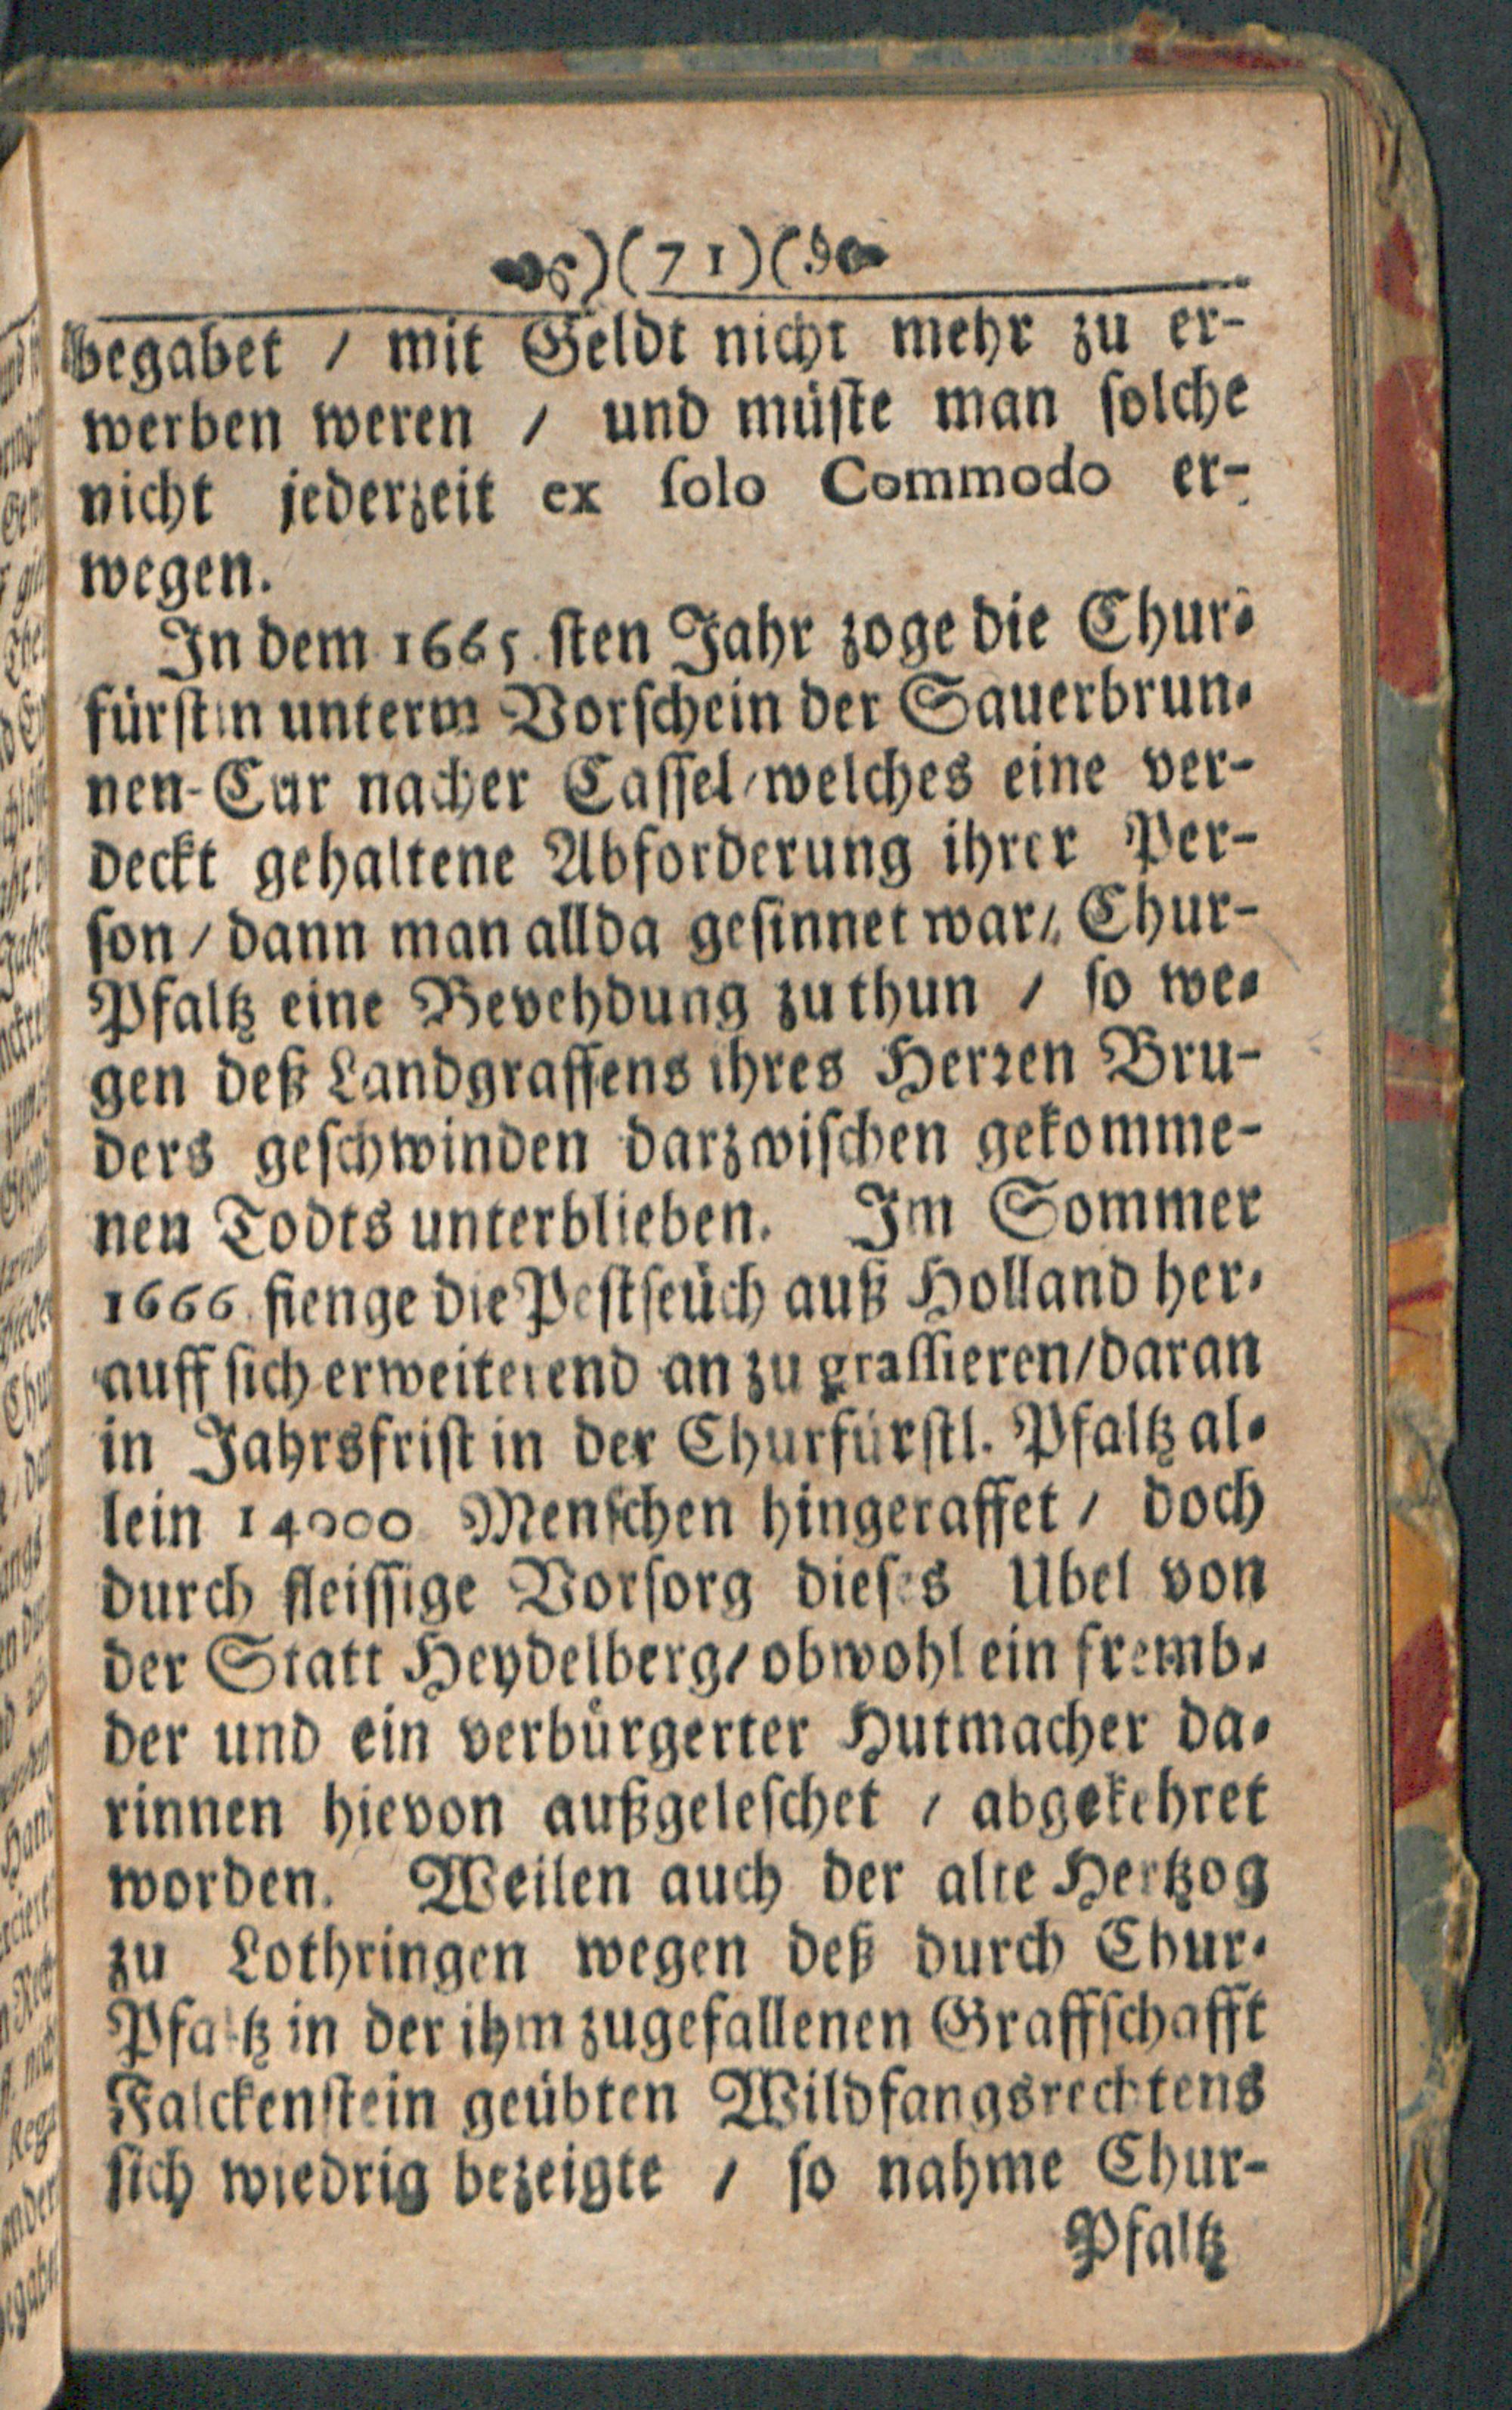 )(71)(
begabet / mit Geldt nicht mehr zu er-
werben weren / und müste man solche
nicht jederzeit ex solo Commodo er-
wegen.
In dem 1665. sten Jahr zoge die Chur-
fürstin unterm Vorschein der Sauerbrun-
nen-Cur nacher Cassel / welches eine ver-
deckt gehaltene Abforderung ihrer Per-
son / dann man allda gesinnet war / Chur-
Pfaltz eine Bevehdung zu thun / so we-
gen deß Landgraffens ihres Herren Bru-
ders geschwinden darzwischen gekomme-
nen Todts unterblieben. Im Sommer
1666. fienge die Pestseüch auß Holland her-
auff sich erweiterend an zu grassieren / daran
in Jahrsfrist in der Churfürstl. Pfaltz al-
lein 14000 Menschen hingeraffet / doch
durch fleissige Vorsorg dieses Ubel von
der Statt Heydelberg / obwohl ein fremb-
der und ein verbürgerter Hutmacher da-
rinnen hievon außgeleschet / abgekehret
worden. Weilen auch der alte Hertzog
zu Lothringen wegen deß durch Chur-
Pfaltz in der ihm zugefallenen Graffschafft
Falckenstein geübten Wildfangsrechtens
sich wiedrig bezeigte / so nahme Chur-
Pfaltz